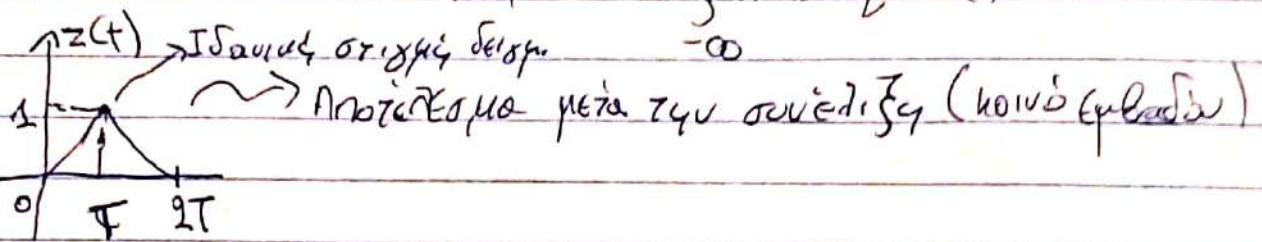 z(t) → Ιδανική στιγμή δειγμ. -∞
1 Αποτέλεσμα μετά την συνέλιξη (κοινό εμβαδόν)
0 T 2T